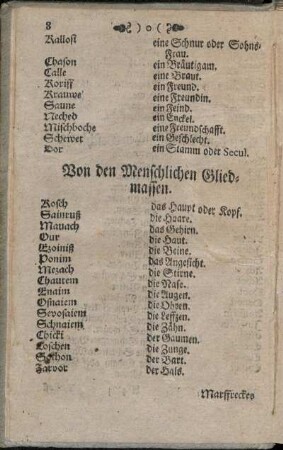 8 ) o (
Kallost eine Schnur oder Sohns-
Frau.
Chason ein Bräutigam.
Calle eine Braut.
Koriff ein Freund.
Krauwe eine Freundin.
Saune ein Feind.
Neched ein Enckel.
Mischboche eine Freundschafft.
Schewet ein Geschlecht.
Dor ein Stamm oder Secul.
Von den Menschlichen Glied-
massen.
Rosch das Haupt oder Kopf.
Saintuß die Haare.
Mauach das Gehirn.
Our die Haut.
Ezoiniß die Beine.
Ponim das Angesicht.
Mezach die Stirne.
Chautem die Nase.
Enaim die Augen.
Osnaiem die Ohren.
Sevosaiem die Leffzen.
Schnaiem die Zähn.
Chicki der Gaumen.
Loschen die Zunge.
der Bart.
Zarvor der Hals.
Marffreckes